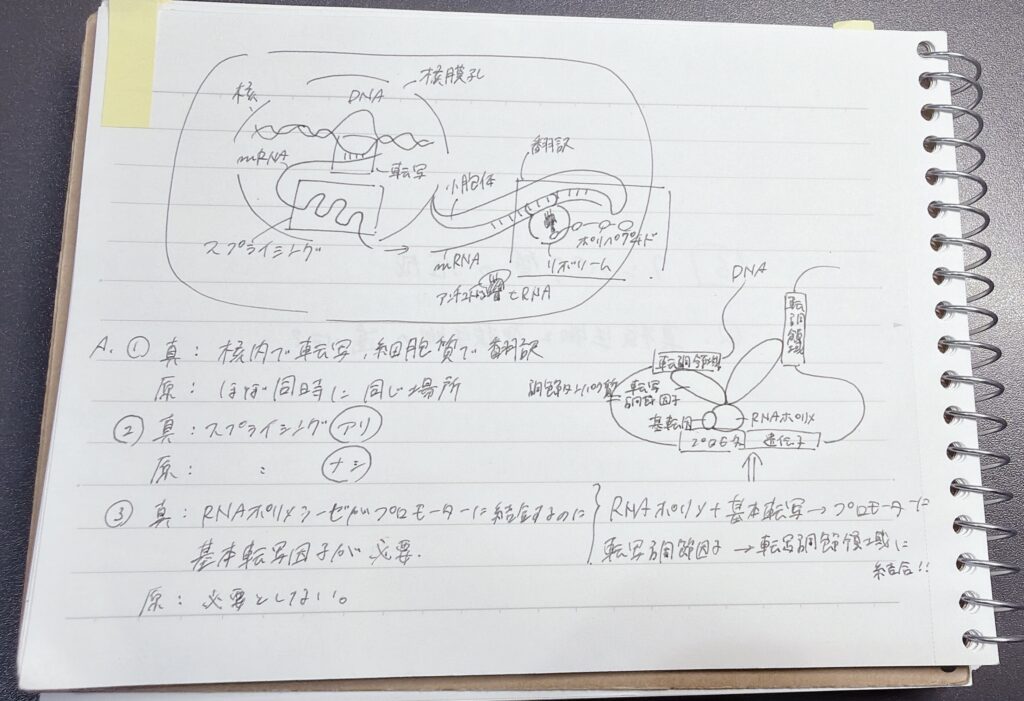 核膜孔
核
DNA
mRNA
転写
翻訳
小胞体
スプライシング
ポリペプチド
mRNA
リボソーム
アンチコドン
tRNA
DNA
転調領域
転調領域
調節タンパク質
転写
調節因子
基転因
RNAポリメ
プロモータ
遺伝子
A. ① 真：核内で転写、細胞質で翻訳
原：ほぼ同時に同じ場所
② 真：スプライシング アリ
原：　：　ナシ
③ 真：RNAポリメラーゼがプロモーターに結合するのに
基本転写因子が必要.
原：必要としない。
RNAポリメ+基本転写→プロモーターに
転写調節因子→転写調節領域に
結合!!